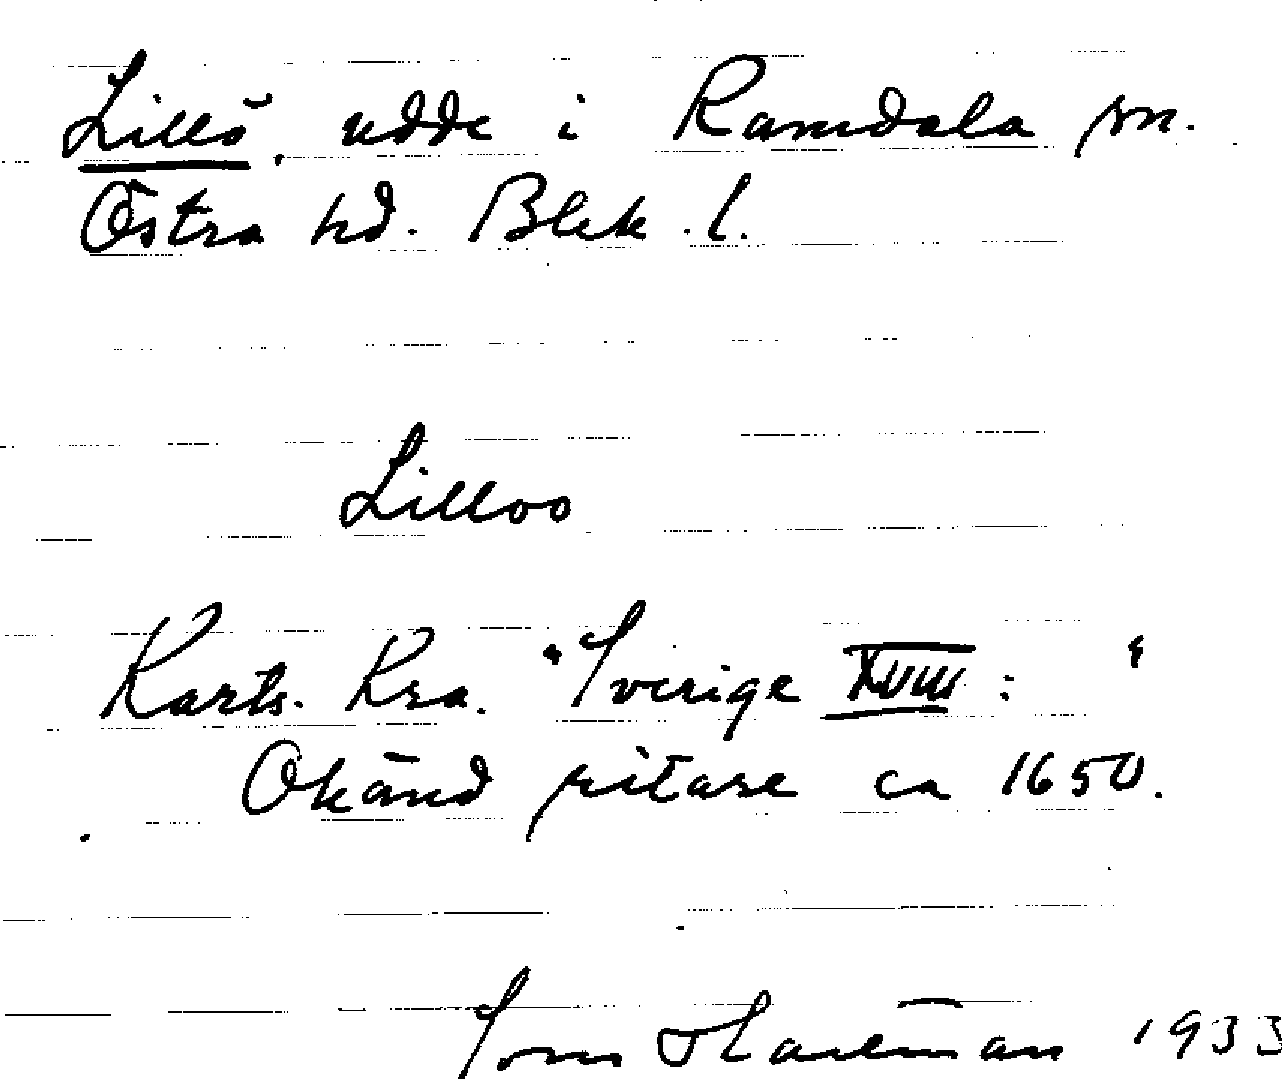 Lillö, udde i Ramdala sn.
Östra hd. Blek. l.
Lilloo
Karts. Kra. "Sverige XVIII: "
Okänd ritare ca 1650.
1933